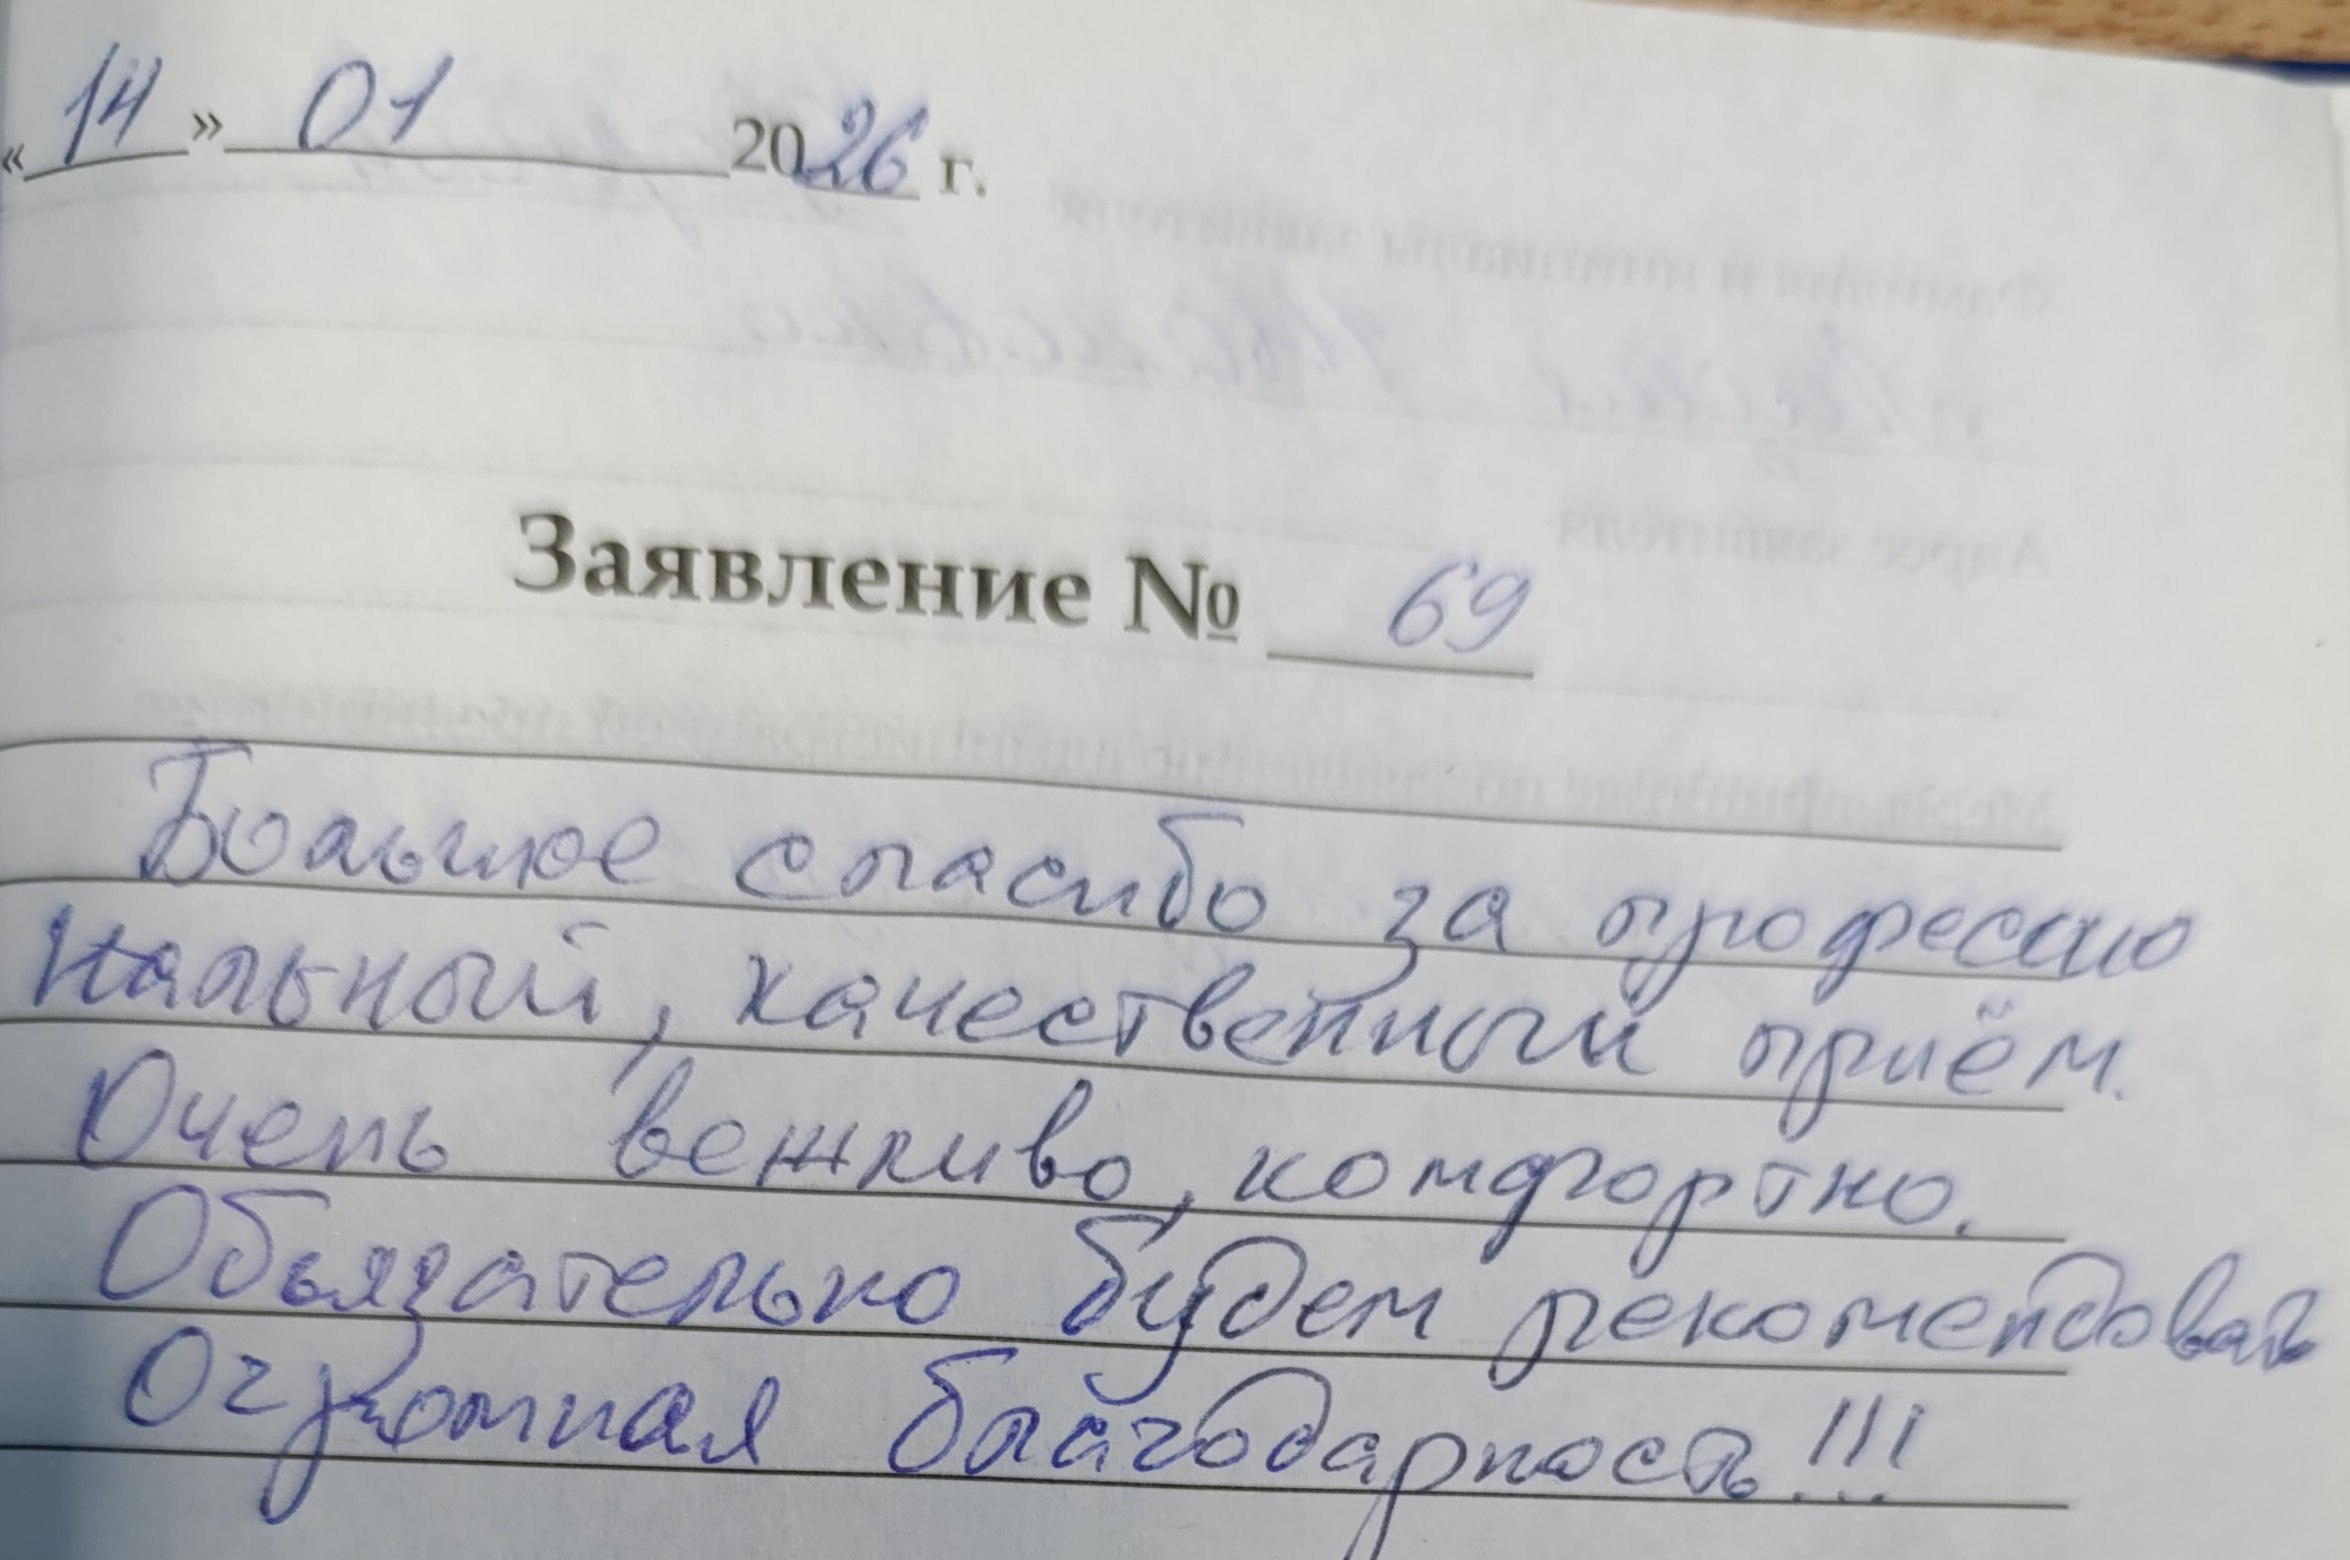 «14» 01 2026 г.
Заявление № 69
Большое спасибо за професcио
нальный, качественный приём.
Очень вежливо, комфортно.
Обьязательно будем рекомендовать
Огромная благодарность!!!